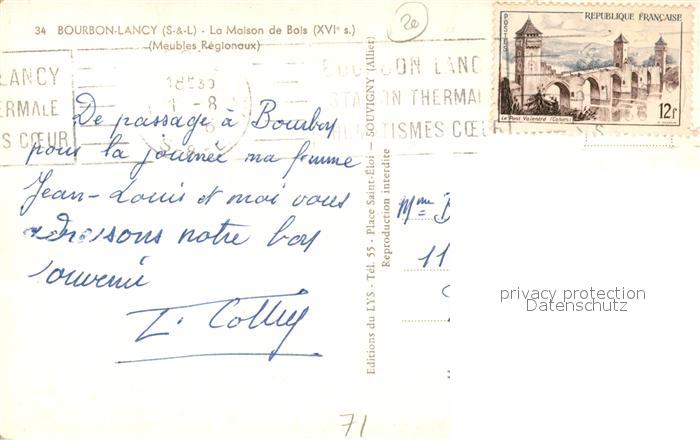 34 BOURBON-LANCY (S-&-L) - La Maison de Bois (XVIᵉ s.)
(Meubles Régionaux)
2e
POSTES
REPUBLIQUE FRANÇAISE
12f
Le Pont Valentré (Cahors)
LANCY
THERMALE
S CŒUR
18H30
1-8
BOURBON LANC
STATION THERMAL
RHUMATISMES CŒU
De passage à Bourbon
pour la journée ma femme
Jean-Louis et moi vous
adressons notre bon
souvenir
Editions du LYS - Tél. 55 - Place Saint-Éloi - SOUVIGNY (Allier)
Reproduction interdite
Mme
11
privacy protection
Datenschutz
71